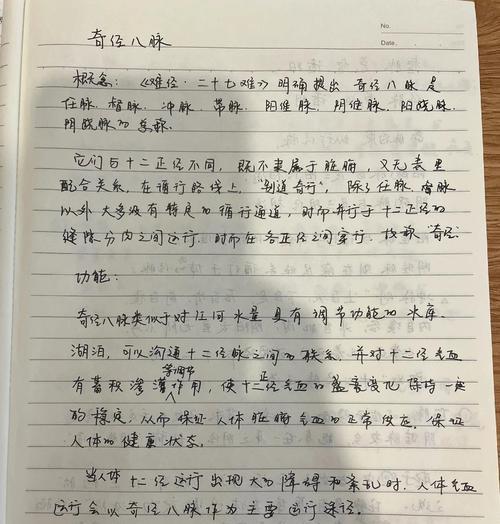 No.
Date.
奇经八脉
概念:《难经·二十七难》明确提出 奇经八脉是
任脉、督脉、冲脉、带脉、阳维脉、阴维脉、阳跷脉、
阴跷脉的总称。
它们与十二正经不同,既不隶属于脏腑,又无表里
配合关系,在循行路线上,"别道奇行",除了任脉、督脉
以外大多没有特定的循行通道,时而并行于十二正经的
缝隙分肉之间运行,时而在各正经之间穿行,故称"奇经"
功能:
奇经八脉类似于对江河水量具有调节功能的水库、
湖泊,可以沟通十二经脉之间的联系,并对十二经气血
有蓄积渗灌等调节作用,使十二正经气血的盛衰变化保持一定
的稳定,从而保证人体脏腑气血的正常供应,保证
人体的健康状态。
当人体十二经运行出现大的障碍和紊乱时,人体气血
运行会以奇经八脉作为主要运行途径。